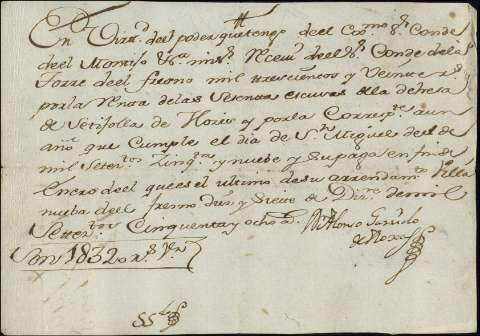 En Virtd. del poder que tengo del Exmo. Sr. Conde
del Montijo &a. mi Sr. Receví del Sr. Conde de la
Torre del fresno mil trescientos y Veinte rs.
por la Renta de las Sesenta escusas de la dehesa
de Setifolla de Hornos y por la Corrigte. a un
año que Cumple el dia de Sn. Miguel de
mil Setectos. Zinqta. y nuebe y su paga en fin de
Enero del que es el ultimo de su arrendamto. Villa
nueba del fresno dies y Siete de Dizre. de mil
Settectos. Cinquenta y ocho as.
Alfonso Garrido
de Roxas
Son 1320 rs. Vn.